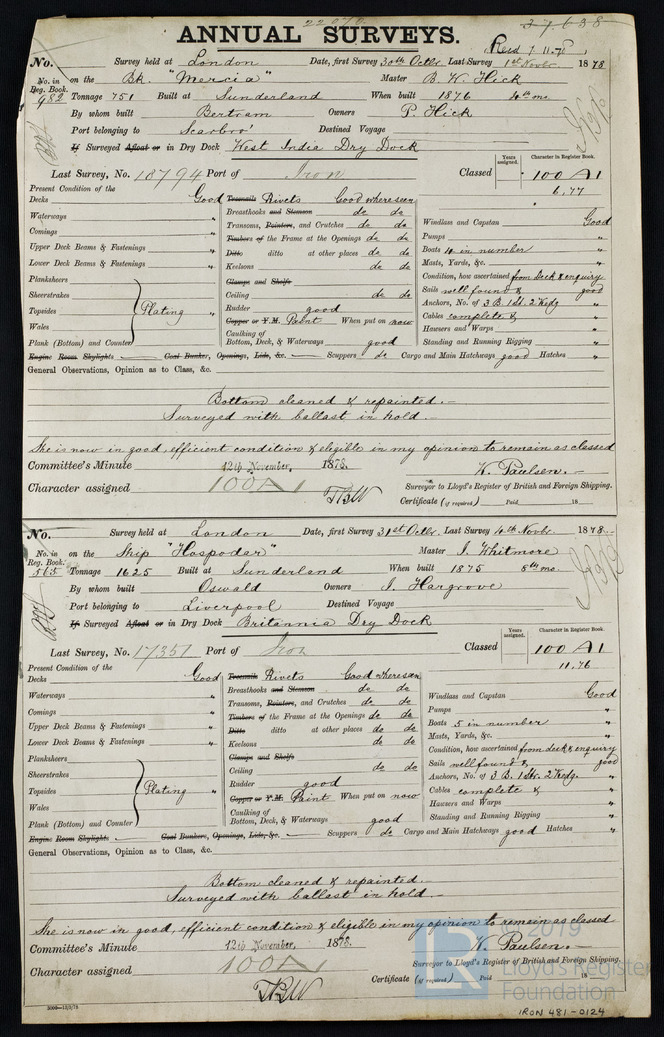 22070
37638
ANNUAL SURVEYS.
Recd 7.11.78
No. Survey held at London Date, first Survey 30th Octbr. Last Survey 1st Novbr. 1878
No. in Reg. Book. 982 on the Bk. "Mercia" Master B. W. Hick
Tonnage 751 Built at Sunderland When built 1876 4th mo.
By whom built Bertram Owners P. Hick
Port belonging to Scarbro' Destined Voyage
If Surveyed Afloat or in Dry Dock West India Dry Dock
Last Survey, No. 18794 Port of Iron Classed Years assigned. Character in Register Book. 100 A1
6,77
Present Condition of the
Decks Good
Waterways "
Comings "
Upper Deck Beams & Fastenings "
Lower Deck Beams & Fastenings "
Planksheers
Sheerstrakes
Topsides Plating "
Wales
Plank (Bottom) and Counter
Treenails Rivets Good where seen
Breasthooks and Stemson do do
Transoms, Pointers, and Crutches do do
Timbers of the Frame at the Openings do do
Ditto ditto at other places do do
Keelsons do do
Clamps and Shelfs
Ceiling do do
Rudder good
Copper or Y.M. Paint When put on now
Caulking of Bottom, Deck, & Waterways good
Windlass and Capstan Good
Pumps "
Boats 4 in number "
Masts, Yards, &c. "
Condition, how ascertained from deck & enquiry
Sails well found & good
Anchors, No. of 3 B. 1 St. 2 Kedg "
Cables complete & "
Hawsers and Warps "
Standing and Running Rigging "
Engine Room Skylights Coal Bunker, Openings, Lids, &c. Scuppers do Cargo and Main Hatchways good Hatches "
General Observations, Opinion as to Class, &c.
Bottom cleaned & repainted.
Surveyed with ballast in hold.
She is now in good, efficient condition & eligible in my opinion to remain as classed
Committee's Minute 12th November, 1878. W. Paulsen.
Character assigned 100A1 Surveyor to Lloyd's Register of British and Foreign Shipping.
TBW Certificate (if required) Paid 18
No. Survey held at London Date, first Survey 31st Octbr. Last Survey 4th Novbr. 1878
No. in Reg. Book. 565 on the Ship "Hospodar" Master J. Whitmore
Tonnage 1625 Built at Sunderland When built 1875 8th mo.
By whom built Oswald Owners J. Hargrove
Port belonging to Liverpool Destined Voyage
If Surveyed Afloat or in Dry Dock Britannia Dry Dock
Last Survey, No. 17351 Port of Iron Classed Years assigned. Character in Register Book. 100 A1
11,76
Present Condition of the
Decks Good
Waterways "
Comings "
Upper Deck Beams & Fastenings "
Lower Deck Beams & Fastenings "
Planksheers
Sheerstrakes
Topsides Plating "
Wales
Plank (Bottom) and Counter
Treenails Rivets Good where seen
Breasthooks and Stemson do do
Transoms, Pointers, and Crutches do do
Timbers of the Frame at the Openings do do
Ditto ditto at other places do do
Keelsons do do
Clamps and Shelfs
Ceiling do do
Rudder good
Copper or Y.M. Paint When put on now
Caulking of Bottom, Deck, & Waterways good
Windlass and Capstan Good
Pumps "
Boats 5 in number "
Masts, Yards, &c. "
Condition, how ascertained from deck & enquiry
Sails well found & good
Anchors, No. of 3 B. 1 Str. 2 Kedg. "
Cables complete & "
Hawsers and Warps "
Standing and Running Rigging "
Engine Room Skylights Coal Bunkers, Openings, Lids, &c. Scuppers do Cargo and Main Hatchways good Hatches "
General Observations, Opinion as to Class, &c.
Bottom cleaned & repainted.
Surveyed with ballast in hold.
She is now in good, efficient condition & eligible in my opinion to remain as classed
Committee's Minute 12th November, 1878. W. Paulsen.
Character assigned 100A1 Surveyor to Lloyd's Register of British and Foreign Shipping.
TBW Certificate (if required) Paid 18
LR © 2019 Lloyd's Register Foundation
IRON 481-0124